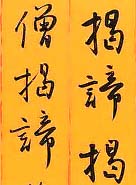 揭諦揭
僧揭諦